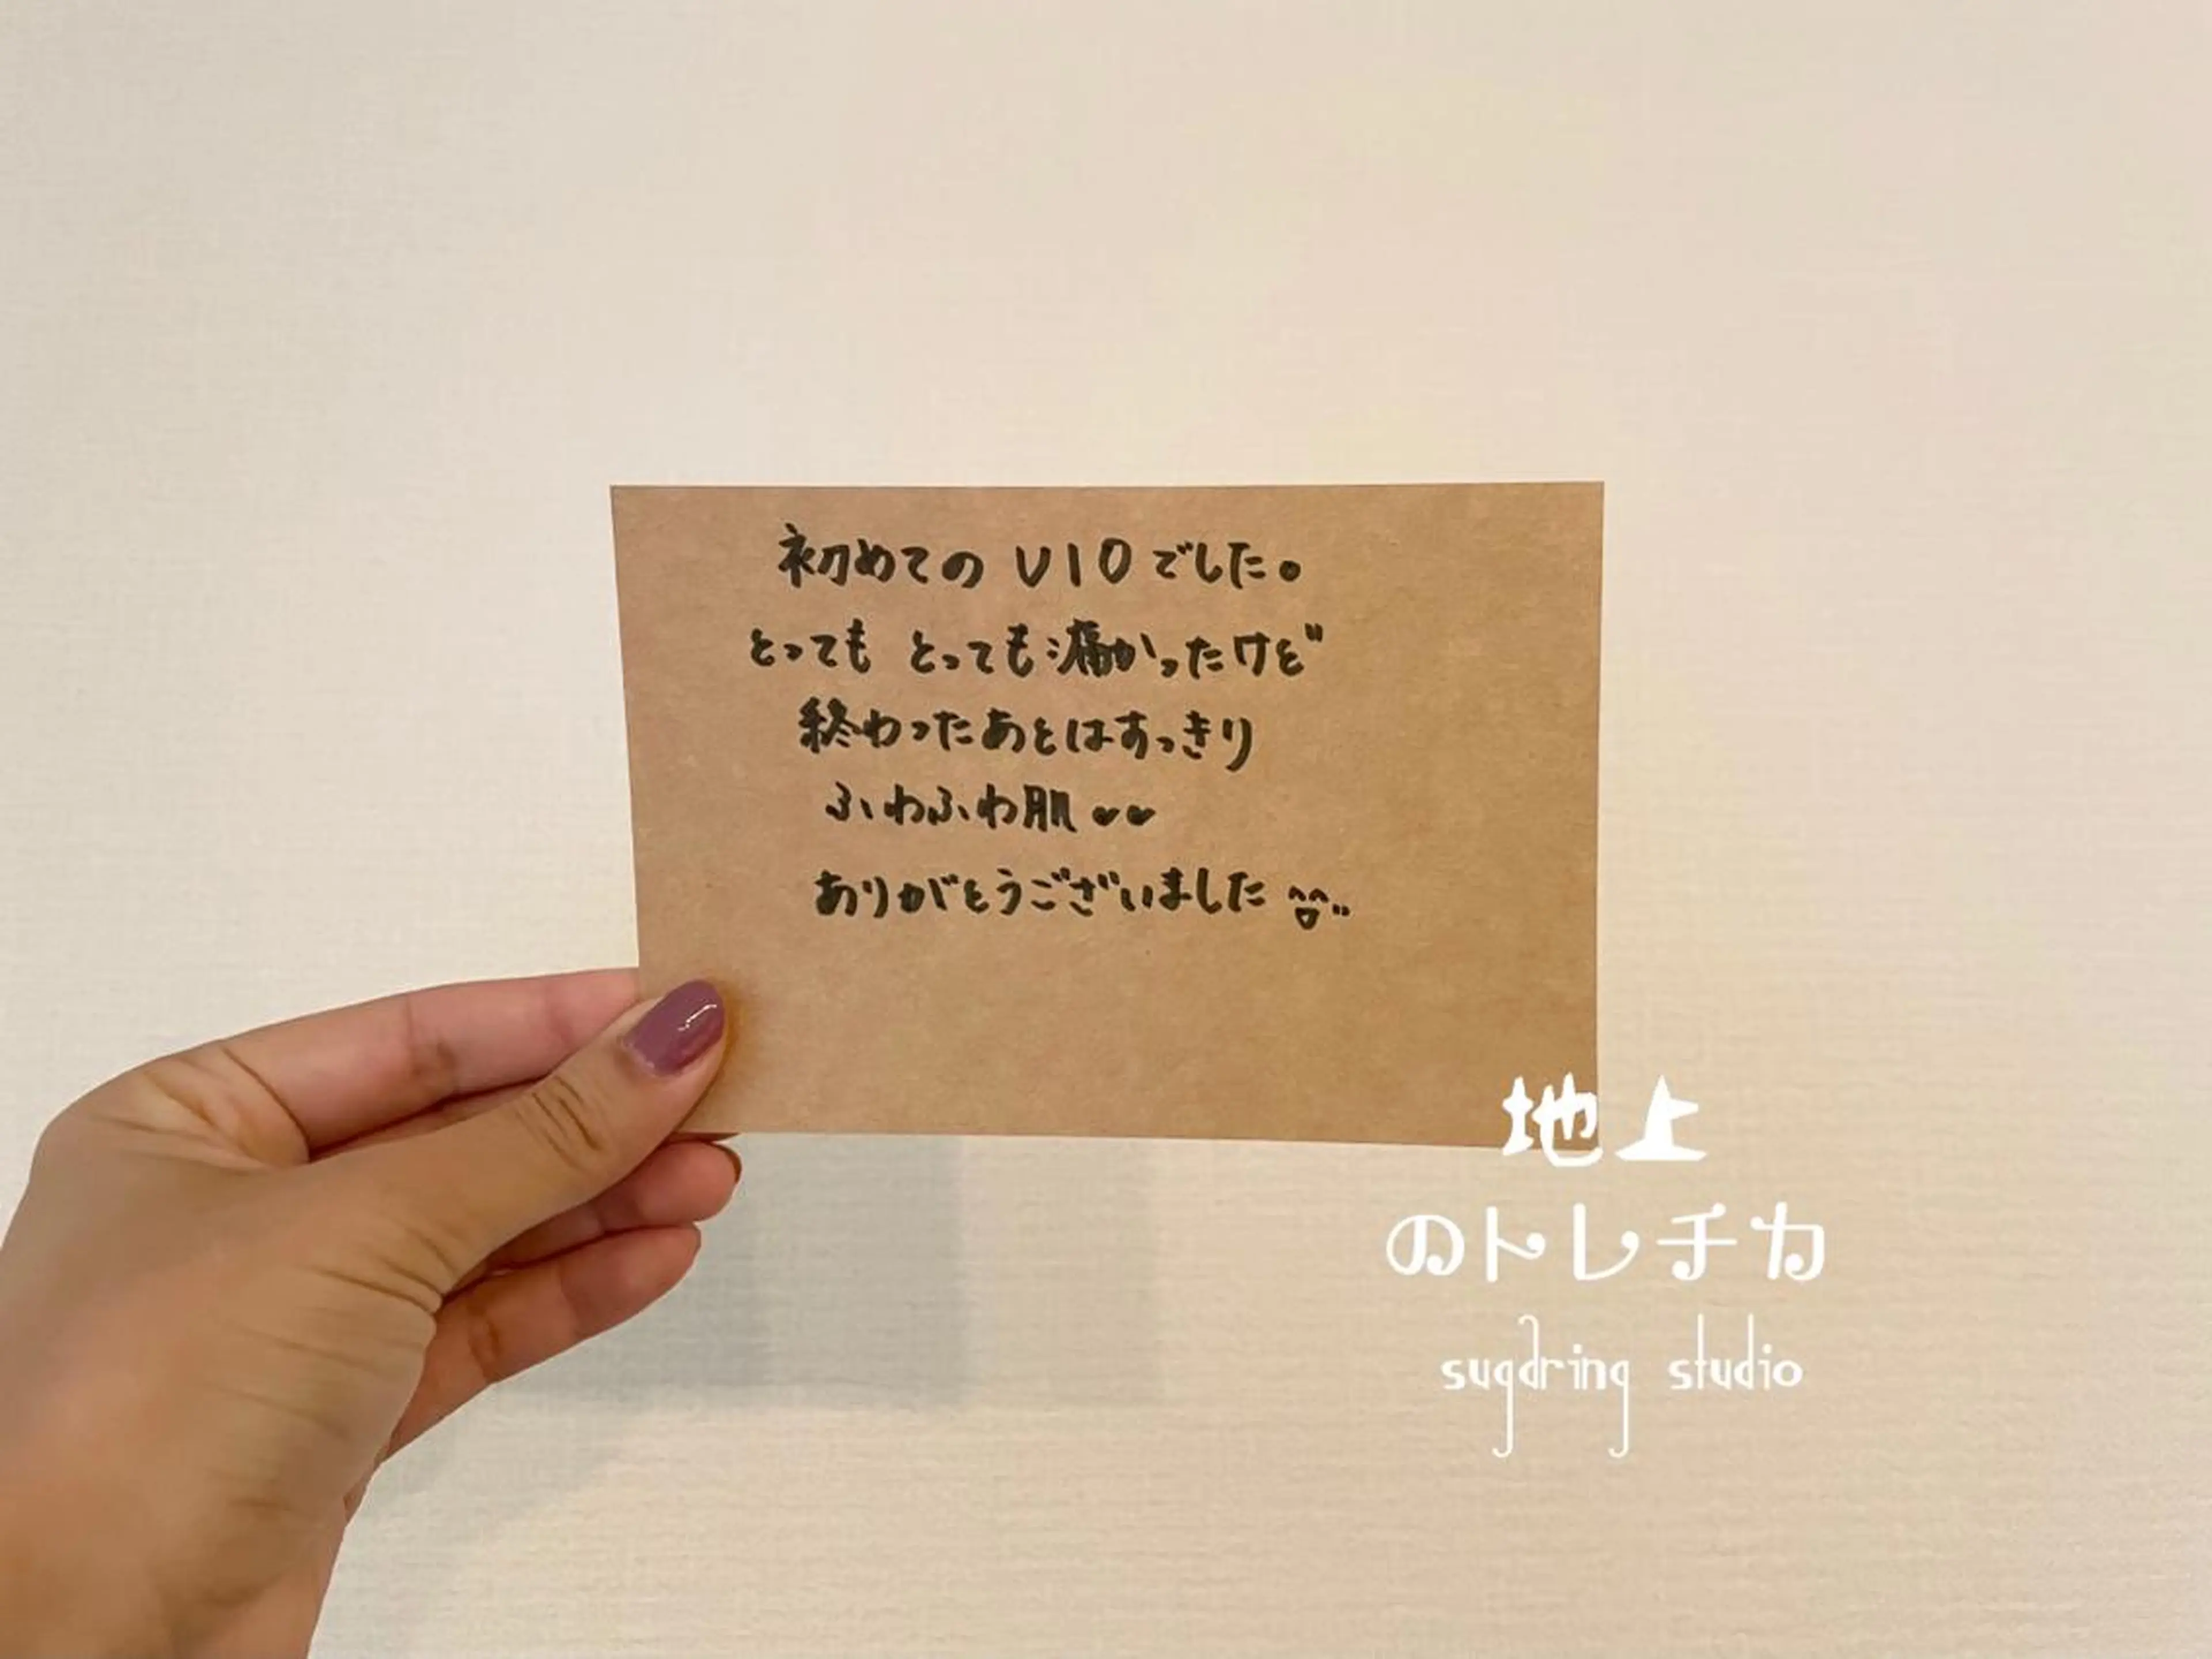 初めてのVIOでした。
とっても とっても痛かったけど
終わったあとはすっきり
ふわふわ肌♥♥
ありがとうございました
地上
のトレチカ
sugaring studio